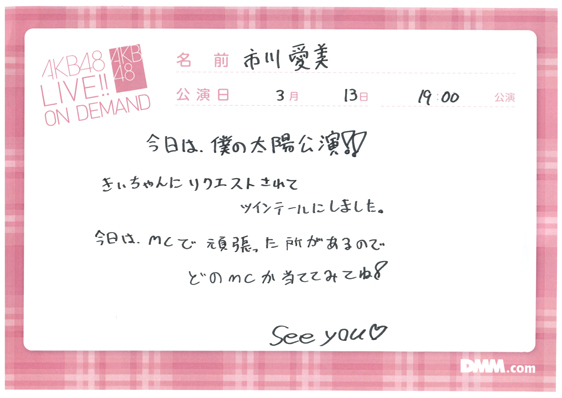 AKB48
LIVE!!
ON DEMAND
AKB
48
名前 市川愛美
公演日 3月 13日 19:00 公演
今日は、僕の太陽公演!!
きぃちゃんにリクエストされて
ツインテールにしました。
今日は、MCで頑張った所があるので
どのMCか当ててみてね!
See you♡
DMM.com